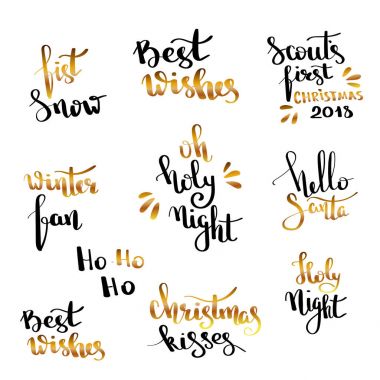 fist
Snow
Best
wishes
Scout's
first
CHRISTMAS
2018
winter
fan
oh
holy
night
hello
Santa
Ho Ho
Ho
Best
wishes
christmas
kisses
Holy
Night